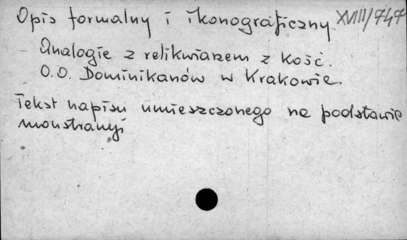 Opis formalny i ikonograficzny. XVIII/747
Analogie z relikwiarzem z Kość.
O.O. Dominikanów w Krakowie.
Tekst napisu umieszczonego na podstawie
monstrancji